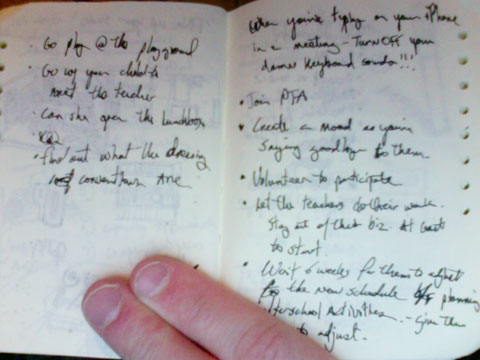 · Go play @ the playground
· Go w/ your child to
meet the teacher
· Can she open the lunchbox
· Find out what the dressing
conventions are
When you're typing on your iPhone
in a meeting - Turn OFF your
damn keyboard sounds!!!
· Join PTA
· Create a moment as you're
saying goodbye to them.
· Volunteer to participate
· Let the teachers do their work.
Stay out of their biz. At least
to start.
· Wait 6 weeks for them to adjust
the new schedule planning
Activities. - Give them
to adjust.